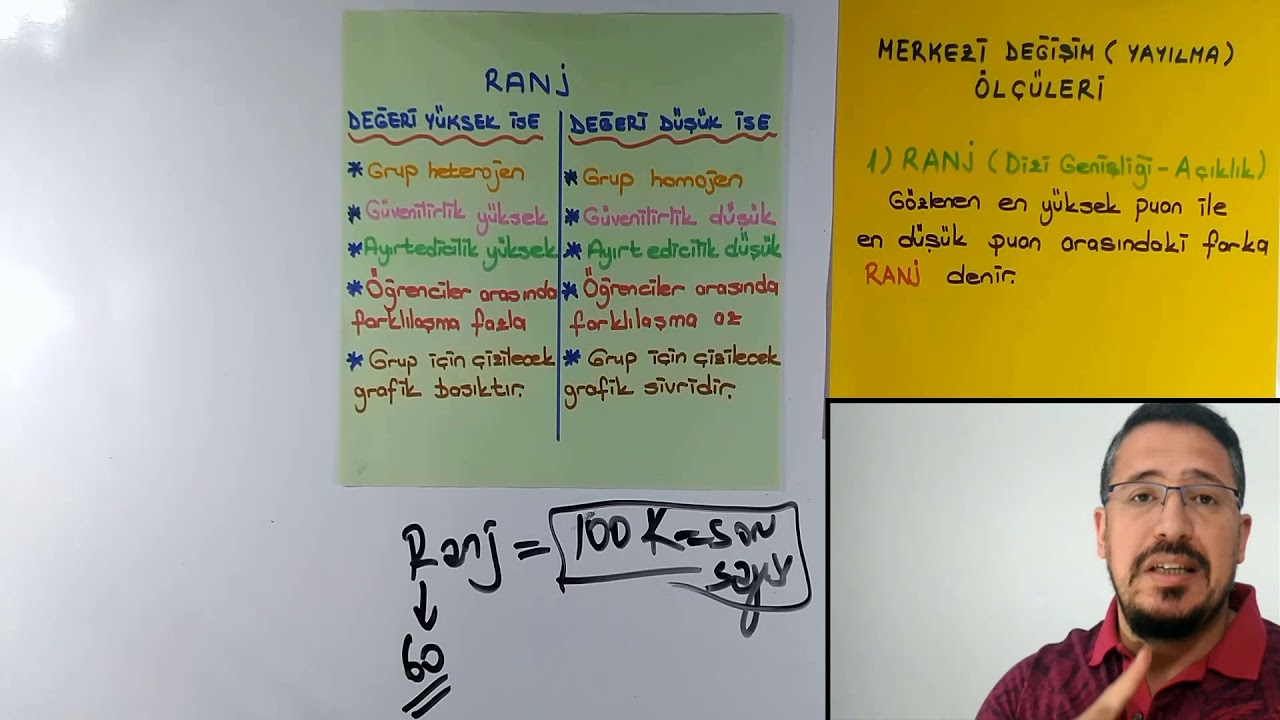 RANJ
DEĞERİ YÜKSEK İSE
* Grup heterojen
* Güvenilirlik yüksek
* Ayırtedicilik yüksek
* Öğrenciler arasında
farklılaşma fazla
* Grup için çizilecek
grafik basıktır.
DEĞERİ DÜŞÜK İSE
* Grup homojen
* Güvenilirlik düşük
* Ayırt edicilik düşük
* Öğrenciler arasında
farklılaşma az
* Grup için çizilecek
grafik sivridir.
MERKEZİ DEĞİŞİM ( YAYILMA)
ÖLÇÜLERİ
1) RANJ (Dizi Genişliği - Açıklık)
Gözlenen en yüksek puan ile
en düşük puan arasındaki farka
RANJ denir.
Ranj = 100 K=son
60